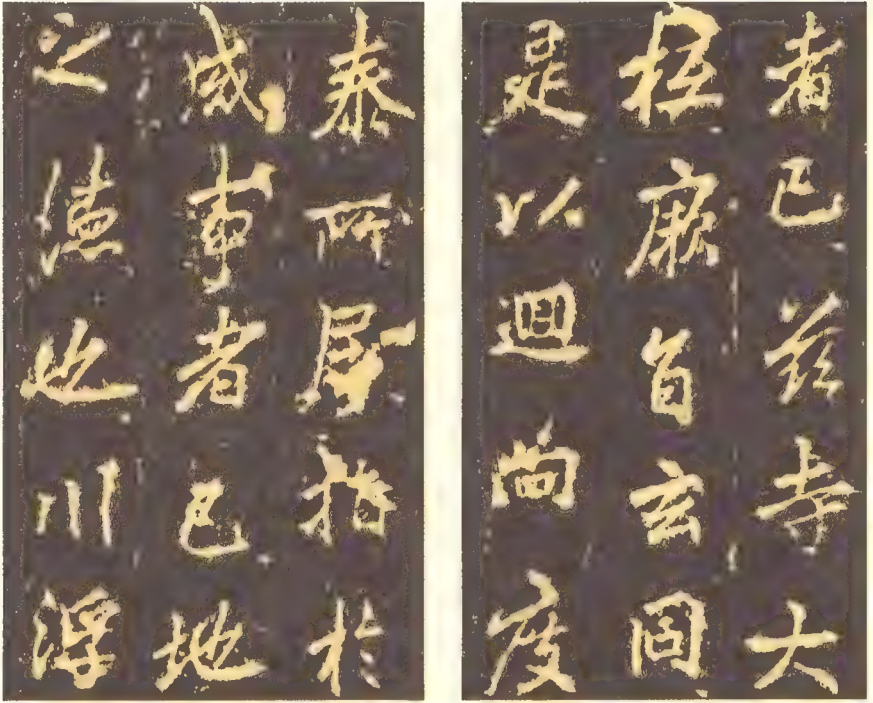 者已茲寺大
柢厥旨玄同
是以迴向度
泰所居指於
成事者已地
之德也川浮